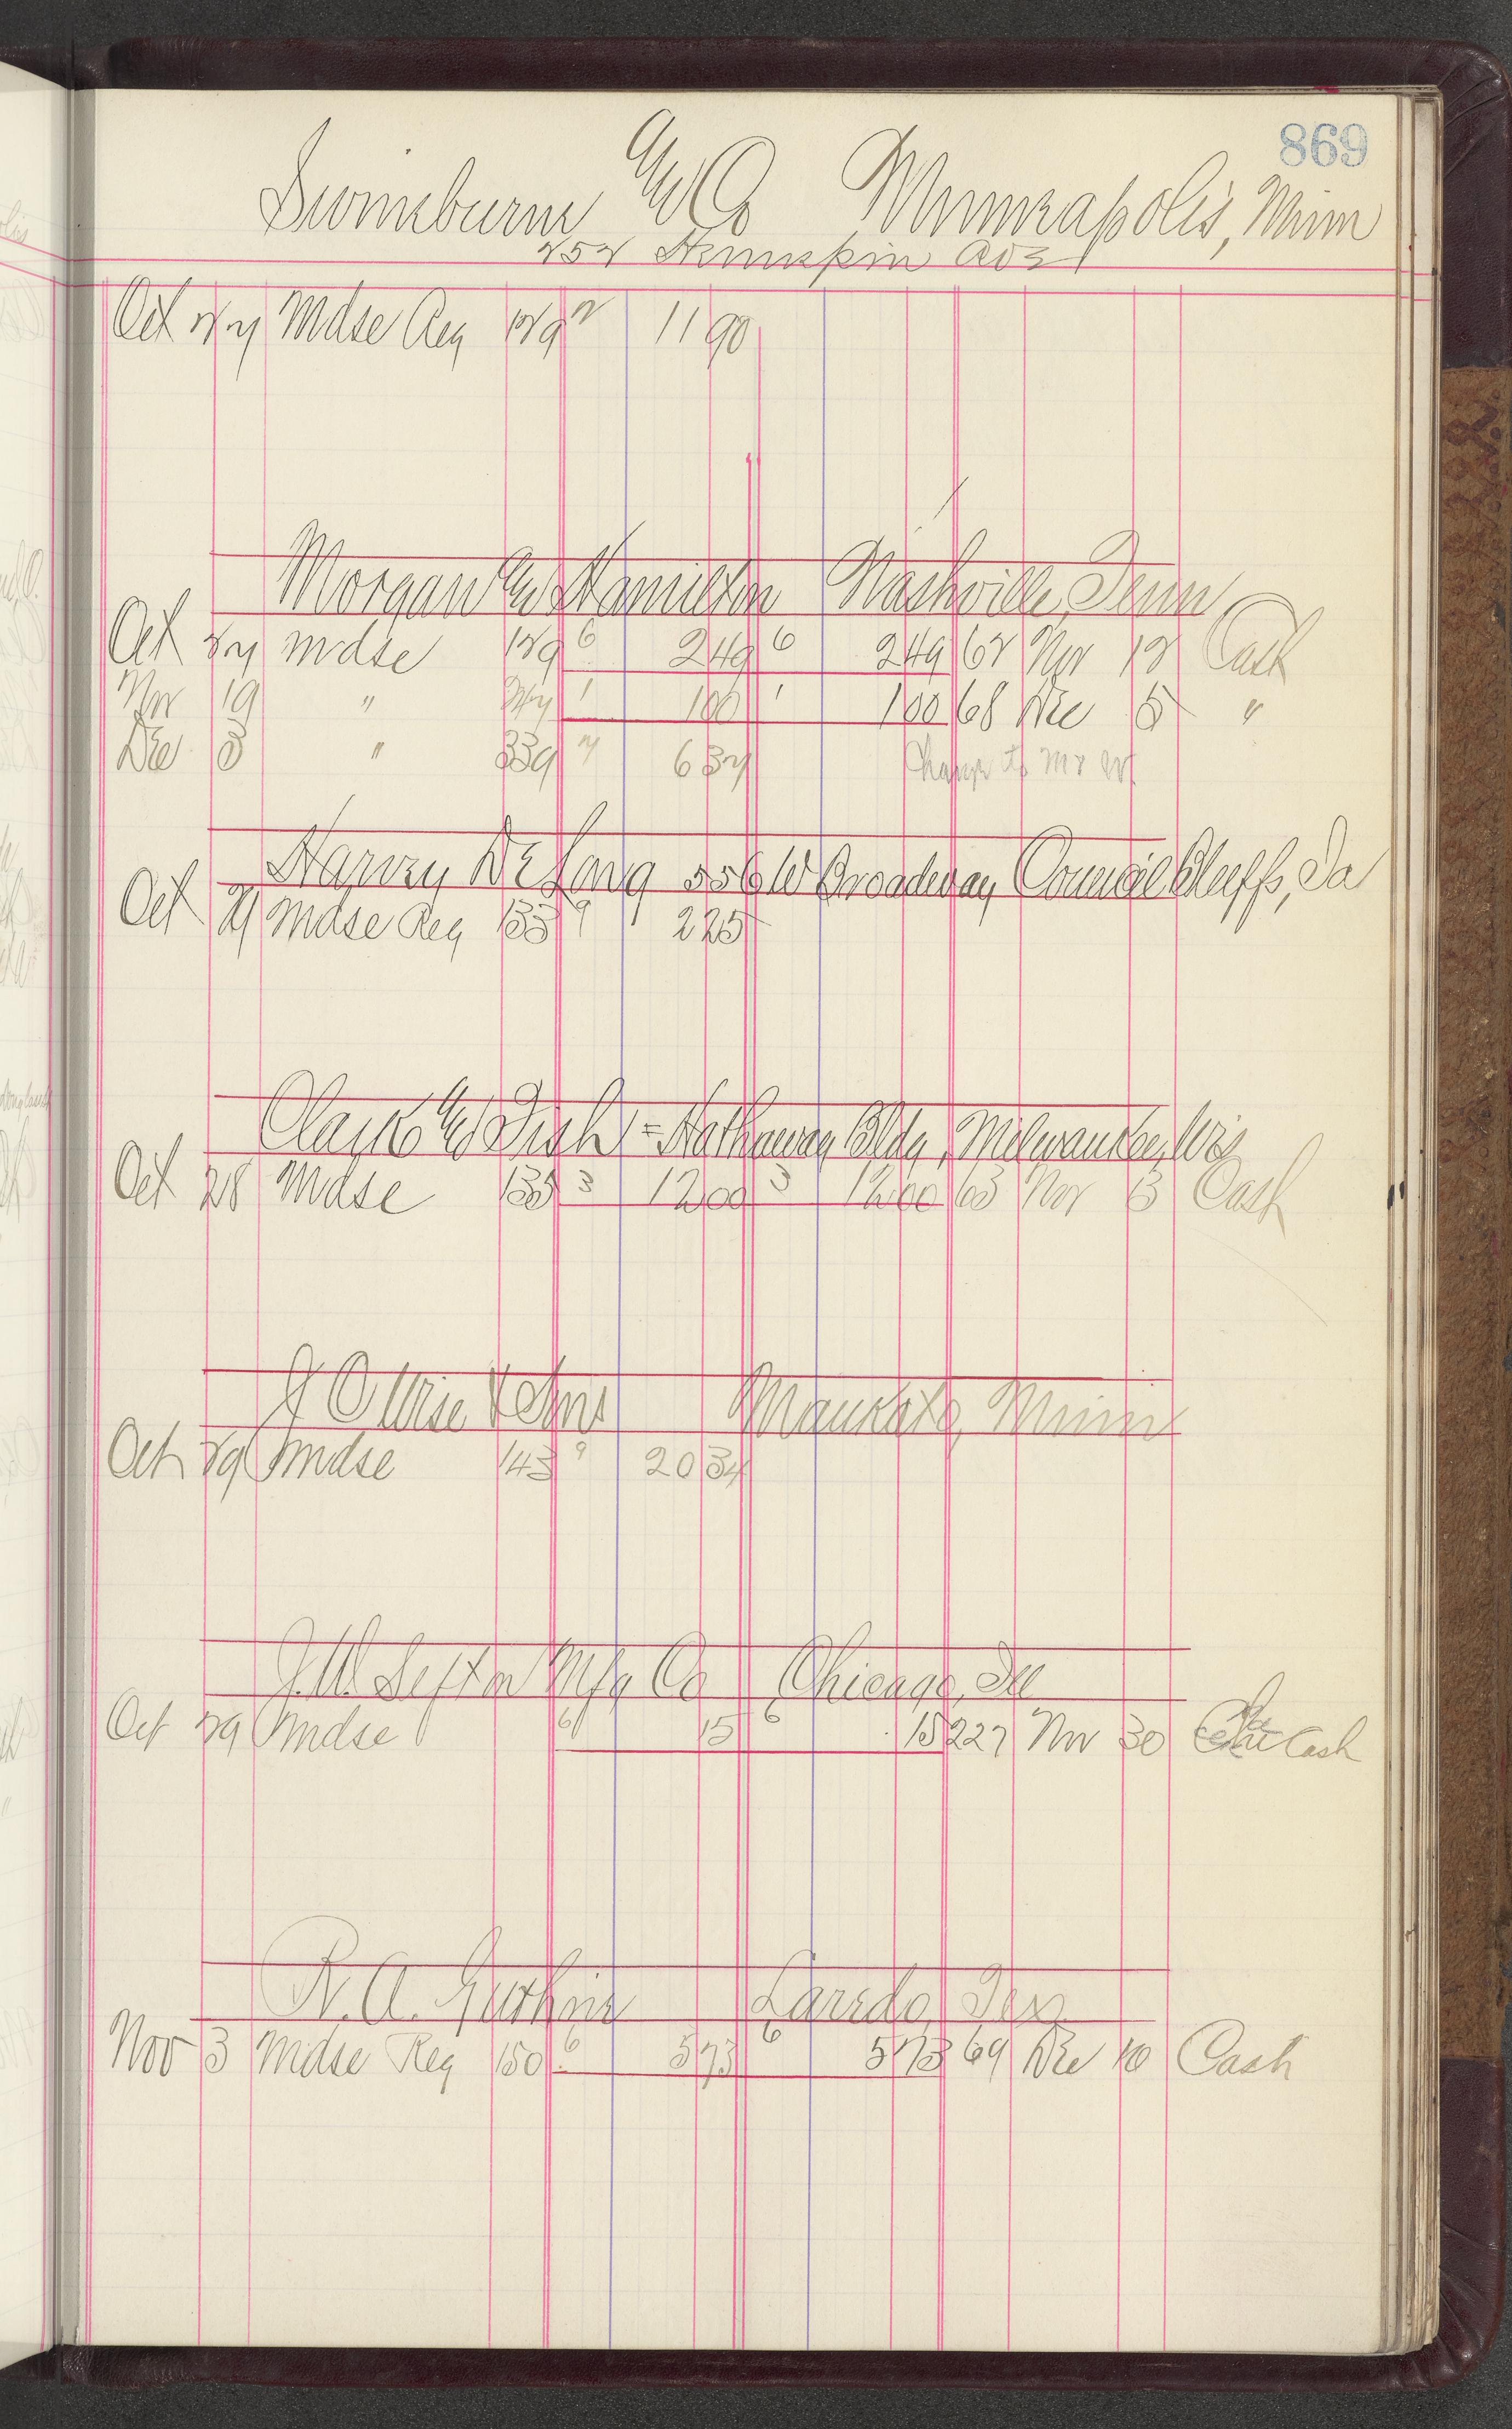 869
Swineburn & Co Minneapolis, Minn
252 Hennepin Ave
Oct 27 Mdse Reg 129 2 11 90
Morgan & Hamilton Nashville, Tenn
Oct 27 Mdse 129 6 2 49 6 2 49 62 Nov 12 Cash
Nov 19 " 1 1 00 1 1 00 68 Dec 5 "
Dec 3 " 339 7 6 37 Charge to Mr W
Harvey DeLong 556 W Broadway Council Bluffs, Ia
Oct 27 Mdse Reg 133 9 2 25
Clark & Fish = Hathaway Bldg, Milwaukee, Wis
Oct 28 Mdse 135 3 12 00 3 12 00 63 Nov 13 Cash
J O Wise & Sons Mankato, Minn
Oct 29 Mdse 143 9 20 34
J. W. Sefton Mfg Co Chicago, Ill
Oct 29 Mdse 6 15 6 15 227 Nov 30 Cash
R. A. Guthrie Laredo, Tex
Nov 3 Mdse Reg 150 6 5 73 6 5 73 69 Dec 10 Cash